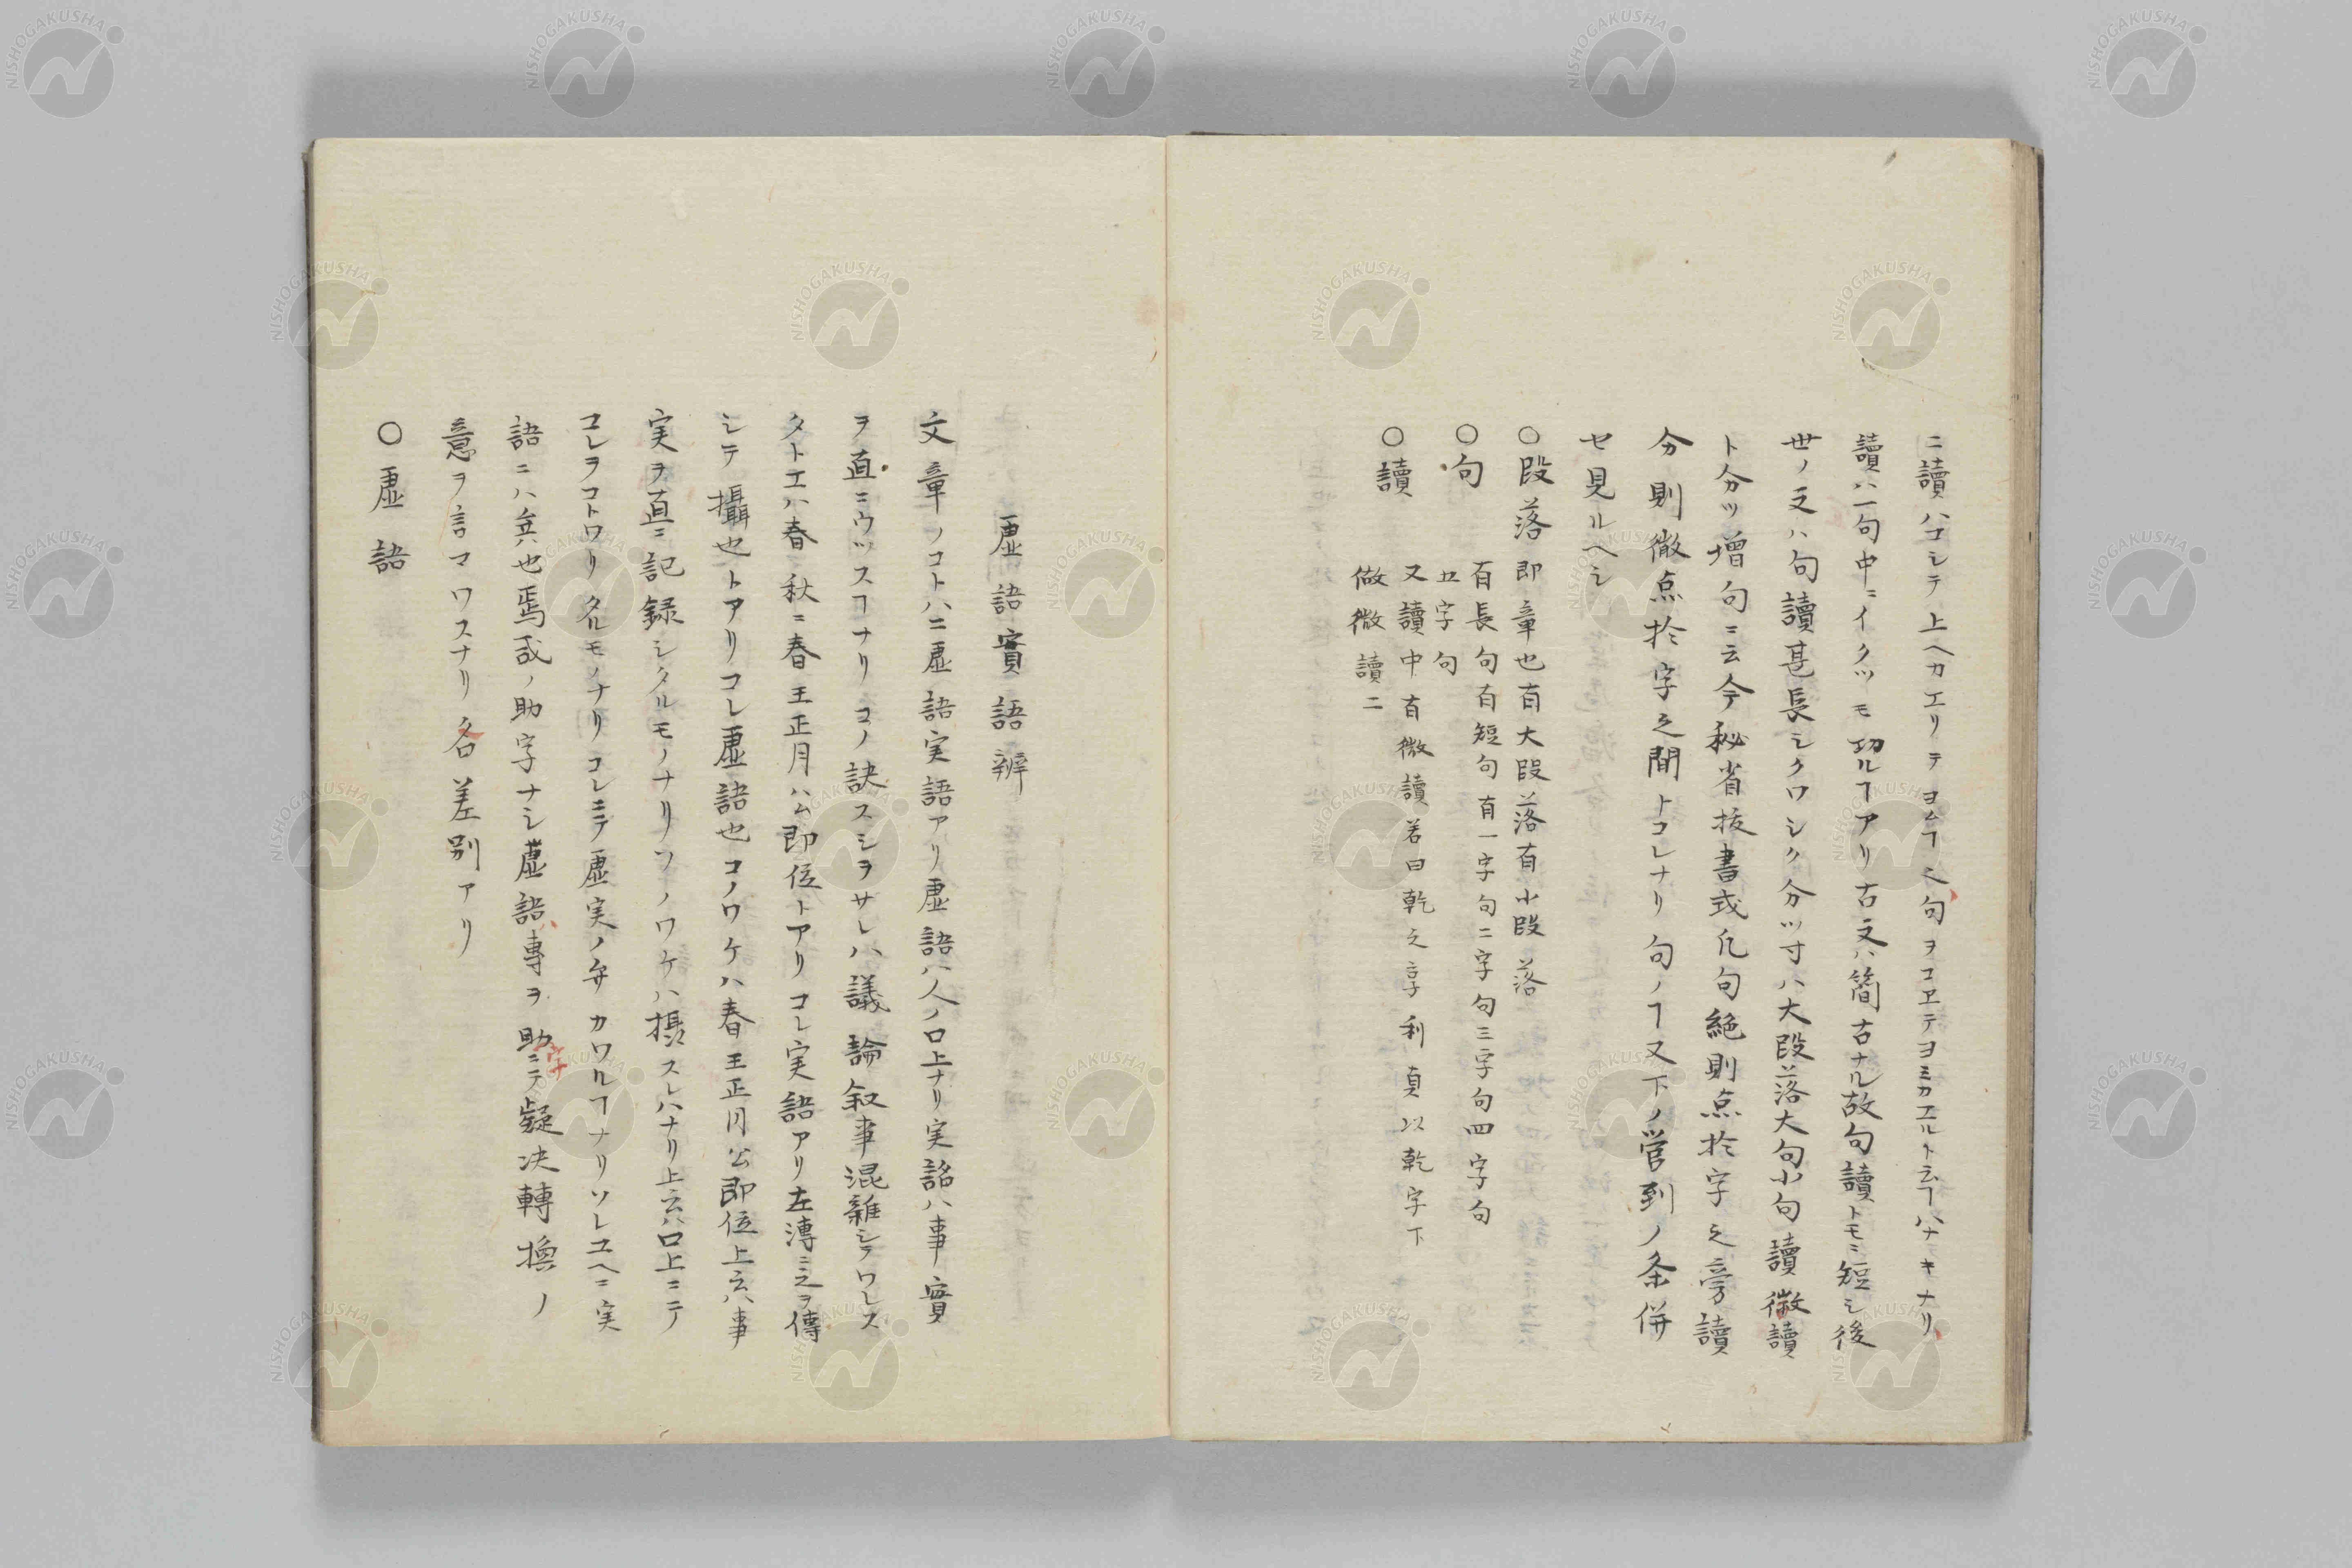 ニ讀ハコシテ上ヘカエリテヨムヿ之句ヲコヱテヨミカエルト云ヿハナキナリ
讀ハ一句中ニイクツモ切ルヿアリ古文ハ簡古ナル故句讀トモニ短シ後
世ノ文ハ句讀甚長シクワシク分ツ寸ハ大段落大句小句讀微讀
ト分ツ増句ニ云今秘省挍書式凢句絶則点於字之旁讀
分則微点於字之間トコレナリ句ノヿ又下ノ管到ノ条併
セ見ルヘシ
〇段落 即章也有大段落有小段落
〇句 有長句有短句有一字句二字句三字句四字句
五字句
〇讀 又讀中有微讀若曰乾之享利貞以乾字下
做微讀二
虚語實語辨
文章ノコトハニ虚語実語アリ虚語ハ人ノ口上ナリ実語ハ事實
ヲ直ニウツスヿナリコノ訣スシヲサレハ議論叙事混雜シテワレス
タトエハ春秋ニ春王正月ハ公即位トアリコレ実語アリ左漙ニ之ヲ傳
シテ攝也トアリコレ虚語也コノワケハ春王正月公即位上云ハ事
実ヲ直ニ記録シタルモノナリソノワケハ摂スレハナリ上云ハ口上ニテ
コレヲコトワリタルモノナリコレニテ虚実ノ弁カワルヿナリソレユヘニ実
語ニハ矣也焉哉ノ助字ナシ虚語專ヲ助ニテ疑决轉換ノ
意ヲ言マワスナリ各差別アリ
〇虚語